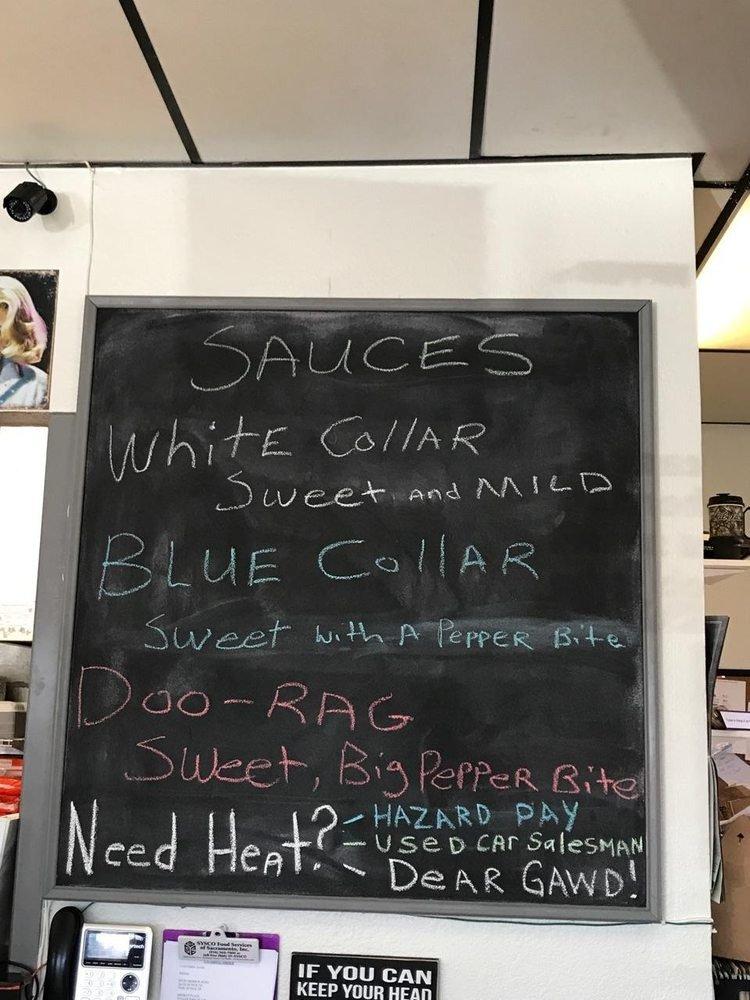 SAUCES
WhitE CollAR
Sweet and MILD
BLUE CollAR
Sweet with A PEPPER Bite
Doo-RAG
Sweet, Big PEPPER Bite
Need HeAt?
- HAZARD PAY
- USeD CAr SalesMAN
- DeAR GAWD!
SYSCO Food Services
of Sacramento, Inc.
IF YOU CAN
KEEP YOUR HEAD